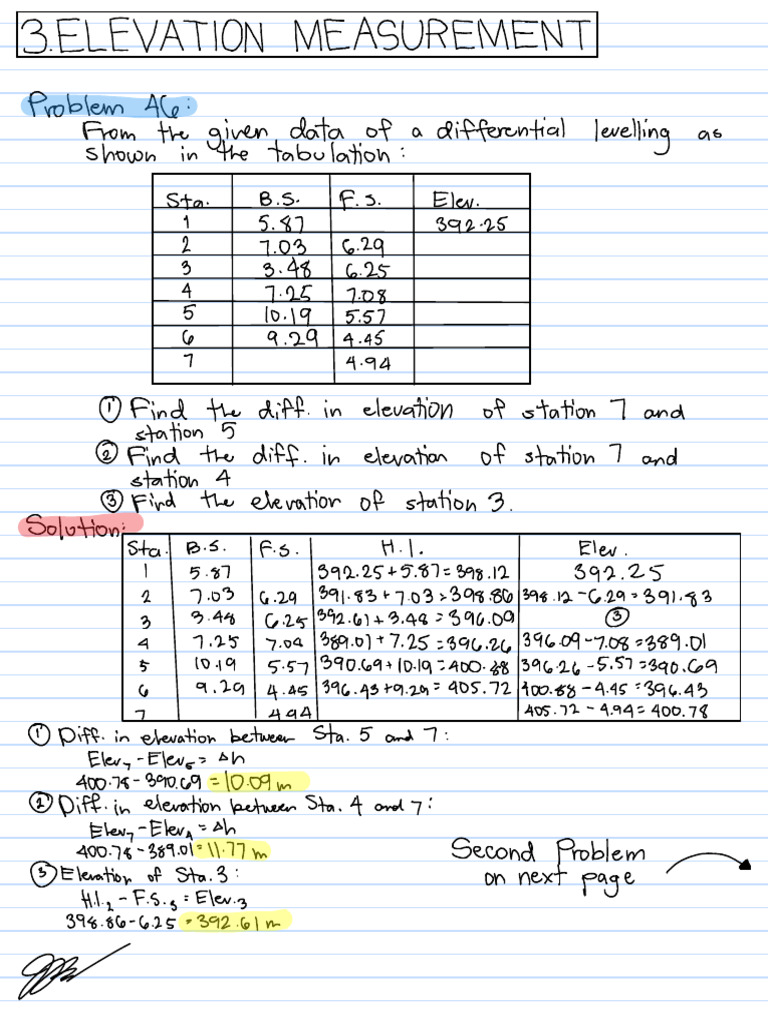 3. ELEVATION MEASUREMENT
Problem 46:
From the given data of a differential levelling as
shown in the tabulation:
Sta. B.S. F.S. Elev.
1 5.87 392.25
2 7.03 6.29
3 3.48 6.25
4 7.25 7.08
5 10.19 5.57
6 9.29 4.45
7 4.94
① Find the diff. in elevation of station 7 and
station 5
② Find the diff. in elevation of station 7 and
station 4
③ Find the elevation of station 3.
Solution:
Sta. B.S. F.S. H.I. Elev.
1 5.87 392.25 + 5.87 = 398.12 392.25
2 7.03 6.29 391.83 + 7.03 = 398.86 398.12 - 6.29 = 391.83
3 3.48 6.25 392.61 + 3.48 = 396.09 ③
4 7.25 7.08 389.01 + 7.25 = 396.26 396.09 - 7.08 = 389.01
5 10.19 5.57 390.69 + 10.19 = 400.88 396.26 - 5.57 = 390.69
6 9.29 4.45 396.43 + 9.29 = 405.72 400.88 - 4.45 = 396.43
7 4.94 405.72 - 4.94 = 400.78
① Diff. in elevation between Sta. 5 and 7:
Elev₇ - Elev₅ = Δh
400.78 - 390.69 = 10.09 m
② Diff. in elevation between Sta. 4 and 7:
Elev₇ - Elev₄ = Δh
400.78 - 389.01 = 11.77 m
③ Elevation of Sta. 3:
H.I.₂ - F.S.₃ = Elev.₃
398.86 - 6.25 = 392.61 m
Second Problem
on next page